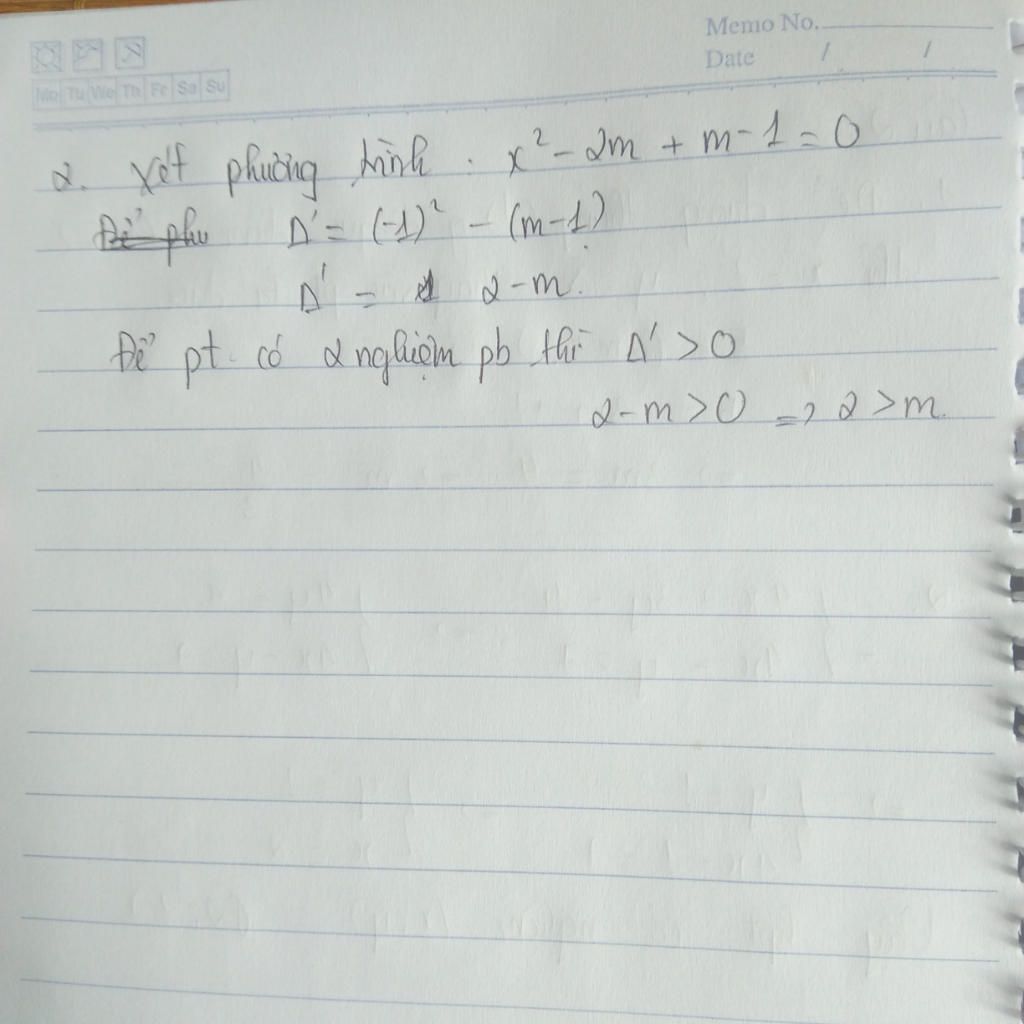 Memo No.
Date / /
Mo Tu We Th Fr Sa Su
2. Xét phương trình : x² - 2m + m - 1 = 0
Để phu Δ' = (-1)² - (m-1)
Δ' = 2-m.
Để pt có 2 nghiệm pb thì Δ' > 0
2-m > 0 => 2 > m.